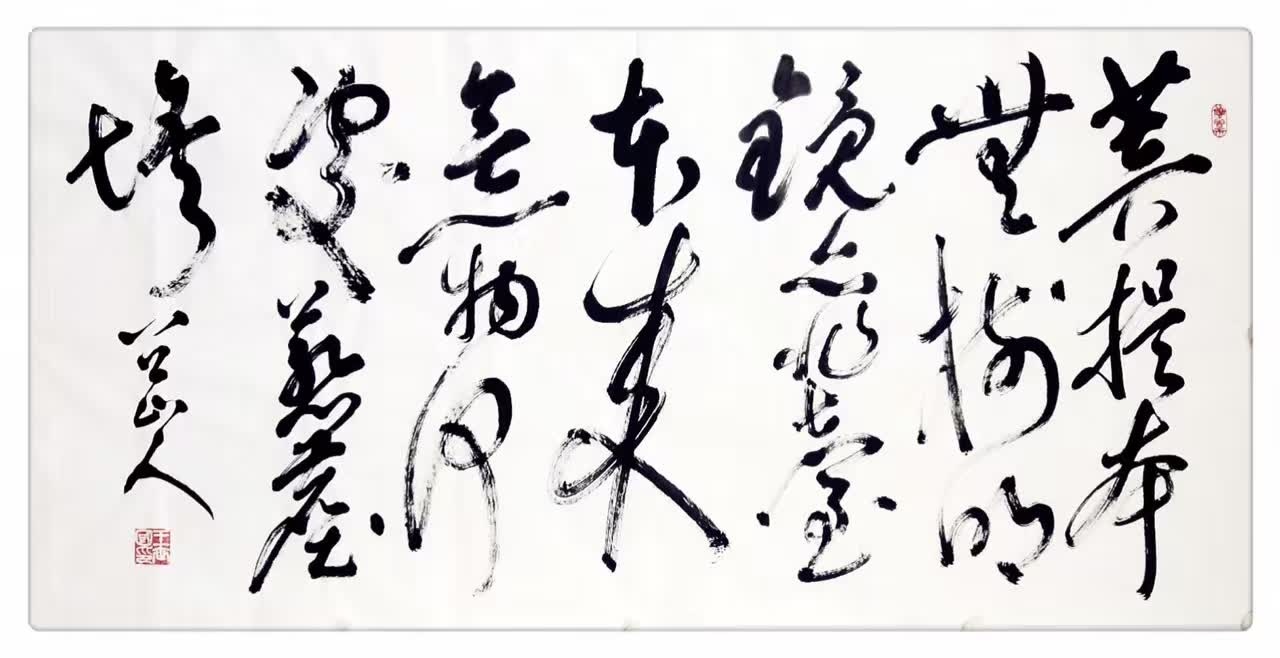 菩提本
無樹明
鏡亦非臺
本來
無一物何
處惹塵
埃
山人